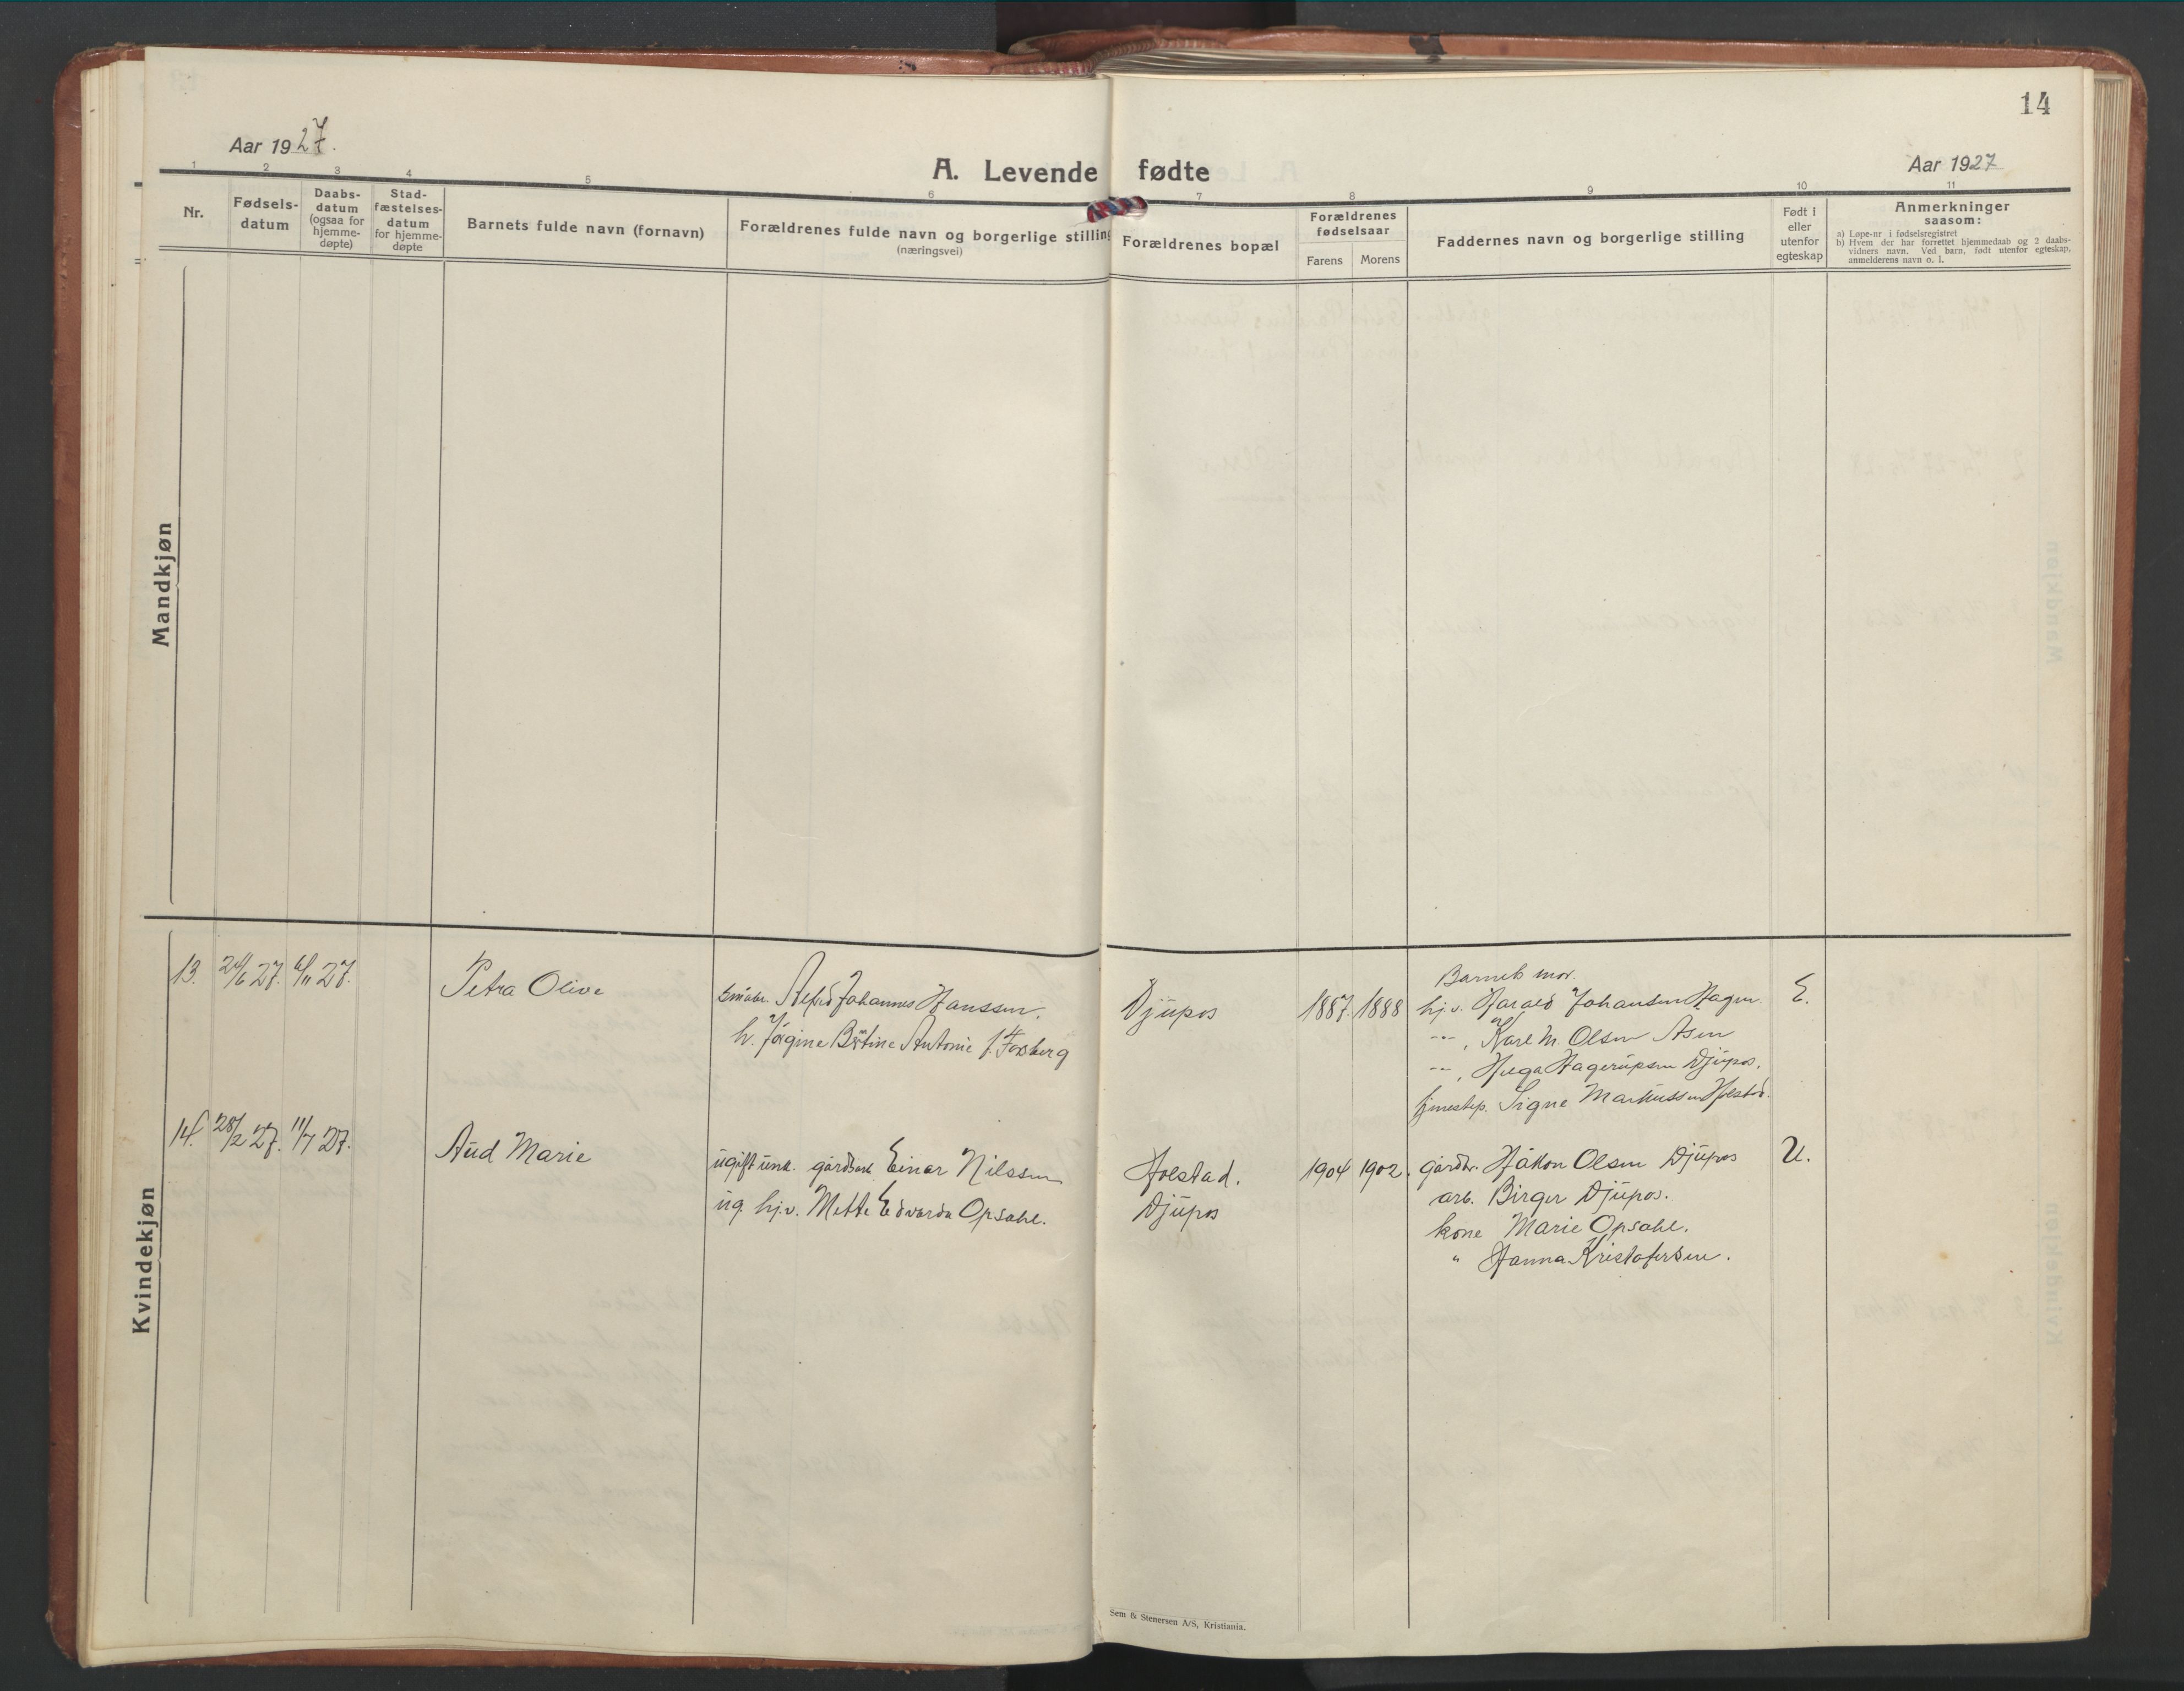 14
Aar 1927.
A. Levende fødte
Aar 1927
1 2 3 4 5 6 7 8 9 10 11
Nr.
Fødsels-
datum
Daabs-
datum
(ogsaa for
hjemme-
døpte)
Stad-
fæstelses-
datum
for hjemme-
døpte
Barnets fulde navn (fornavn)
Forældrenes fulde navn og borgerlige stilling
(næringsvei)
Forældrenes bopæl
Forældrenes
fødselsaar
Farens Morens
Faddernes navn og borgerlige stilling
Født i
eller
utenfor
egteskap
Anmerkninger
saasom:
a) Løpe-nr i fødselsregistret
b) Hvem der har forrettet hjemmedaab og 2 daabs-
vidners navn. Ved barn, født utenfor egteskap,
anmelderens navn o. l.
Mandkjøn
Kvindekjøn
13. 24/6 27. 6/11 27.
Petra Olive
småbr. Alfred Johannes Hanssen.
h. Jörgine Bertine Antonie f. Forsberg
Djüpos
1887. 1888
Barnets mor.
hj.v. Harald Johansen Hagen.
--, Karl M. Olsen Åsen
--, Helga Hagerüpsen Djüpos.
tjenestep. Signe Markussen Holstad.
E.
14. 28/2 27. 11/7 27.
Aüd Marie
ügift üng. gårdbr. Einar Nilssen
üg. hj.v. Mette Edvarda Opsahl.
Holstad.
Djüpos
1904 1902.
gårdbr. Håkon Olsen Djüpos
arb. Birger Djüpos.
kone Marie Opsahl.
" Hanna Kristofersen.
U.
Sem & Stenersen A/S, Kristiania.